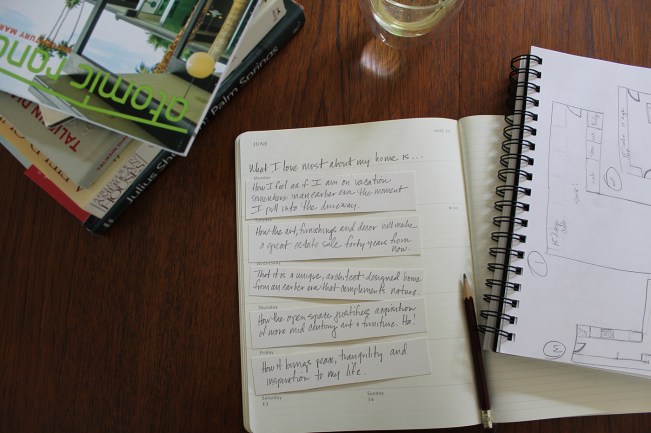 atomic ranch
Julius Shulman
Palm Springs
JUNE
What I love most about my home is...
Monday
How I feel as if I am on vacation
somewhere in an earlier era the moment
I pull into the driveway.
How the art, furnishings and decor will make
a great estate sale forty years from
now.
Wednesday
That it is a unique, architect designed home
from an earlier era that complements nature.
Thursday
How the open space justifies acquisition
of more mid century art & furniture. Ha!
Friday
How it brings peace, tranquility and
inspiration to my life.
Saturday
Sunday